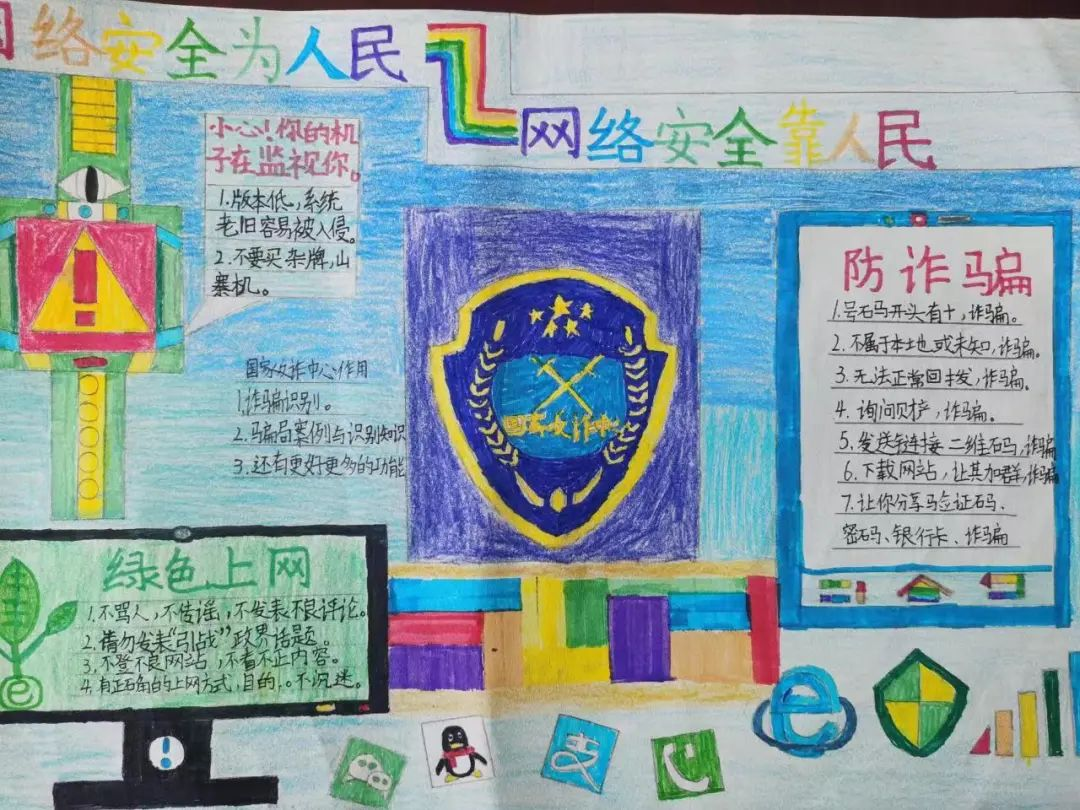 网络安全为人民
网络安全靠人民
小心！你的机
子在监视你。
1.版本低，系统
老旧容易被入侵。
2.不要买杂牌，山
寨机。
国家反诈中心作用
1.诈骗识别。
2.骗局案例与识别知识
3.还有更好更多的功能
国家反诈中心
防诈骗
1.号码开头有十，诈骗。
2.不属于本地或未知，诈骗。
3.无法正常回拨，诈骗。
4.询问财产，诈骗。
5.发送链接二维码，诈骗
6.下载网站，让其加群，诈骗
7.让你分享验证码、
密码、银行卡、诈骗
绿色上网
1.不骂人，不传谣，不发表不良评论。
2.请勿发表“引战”政界话题。
3.不登不良网站，不看不正内容。
4.有正确的上网方式，目的，。不沉迷。
支